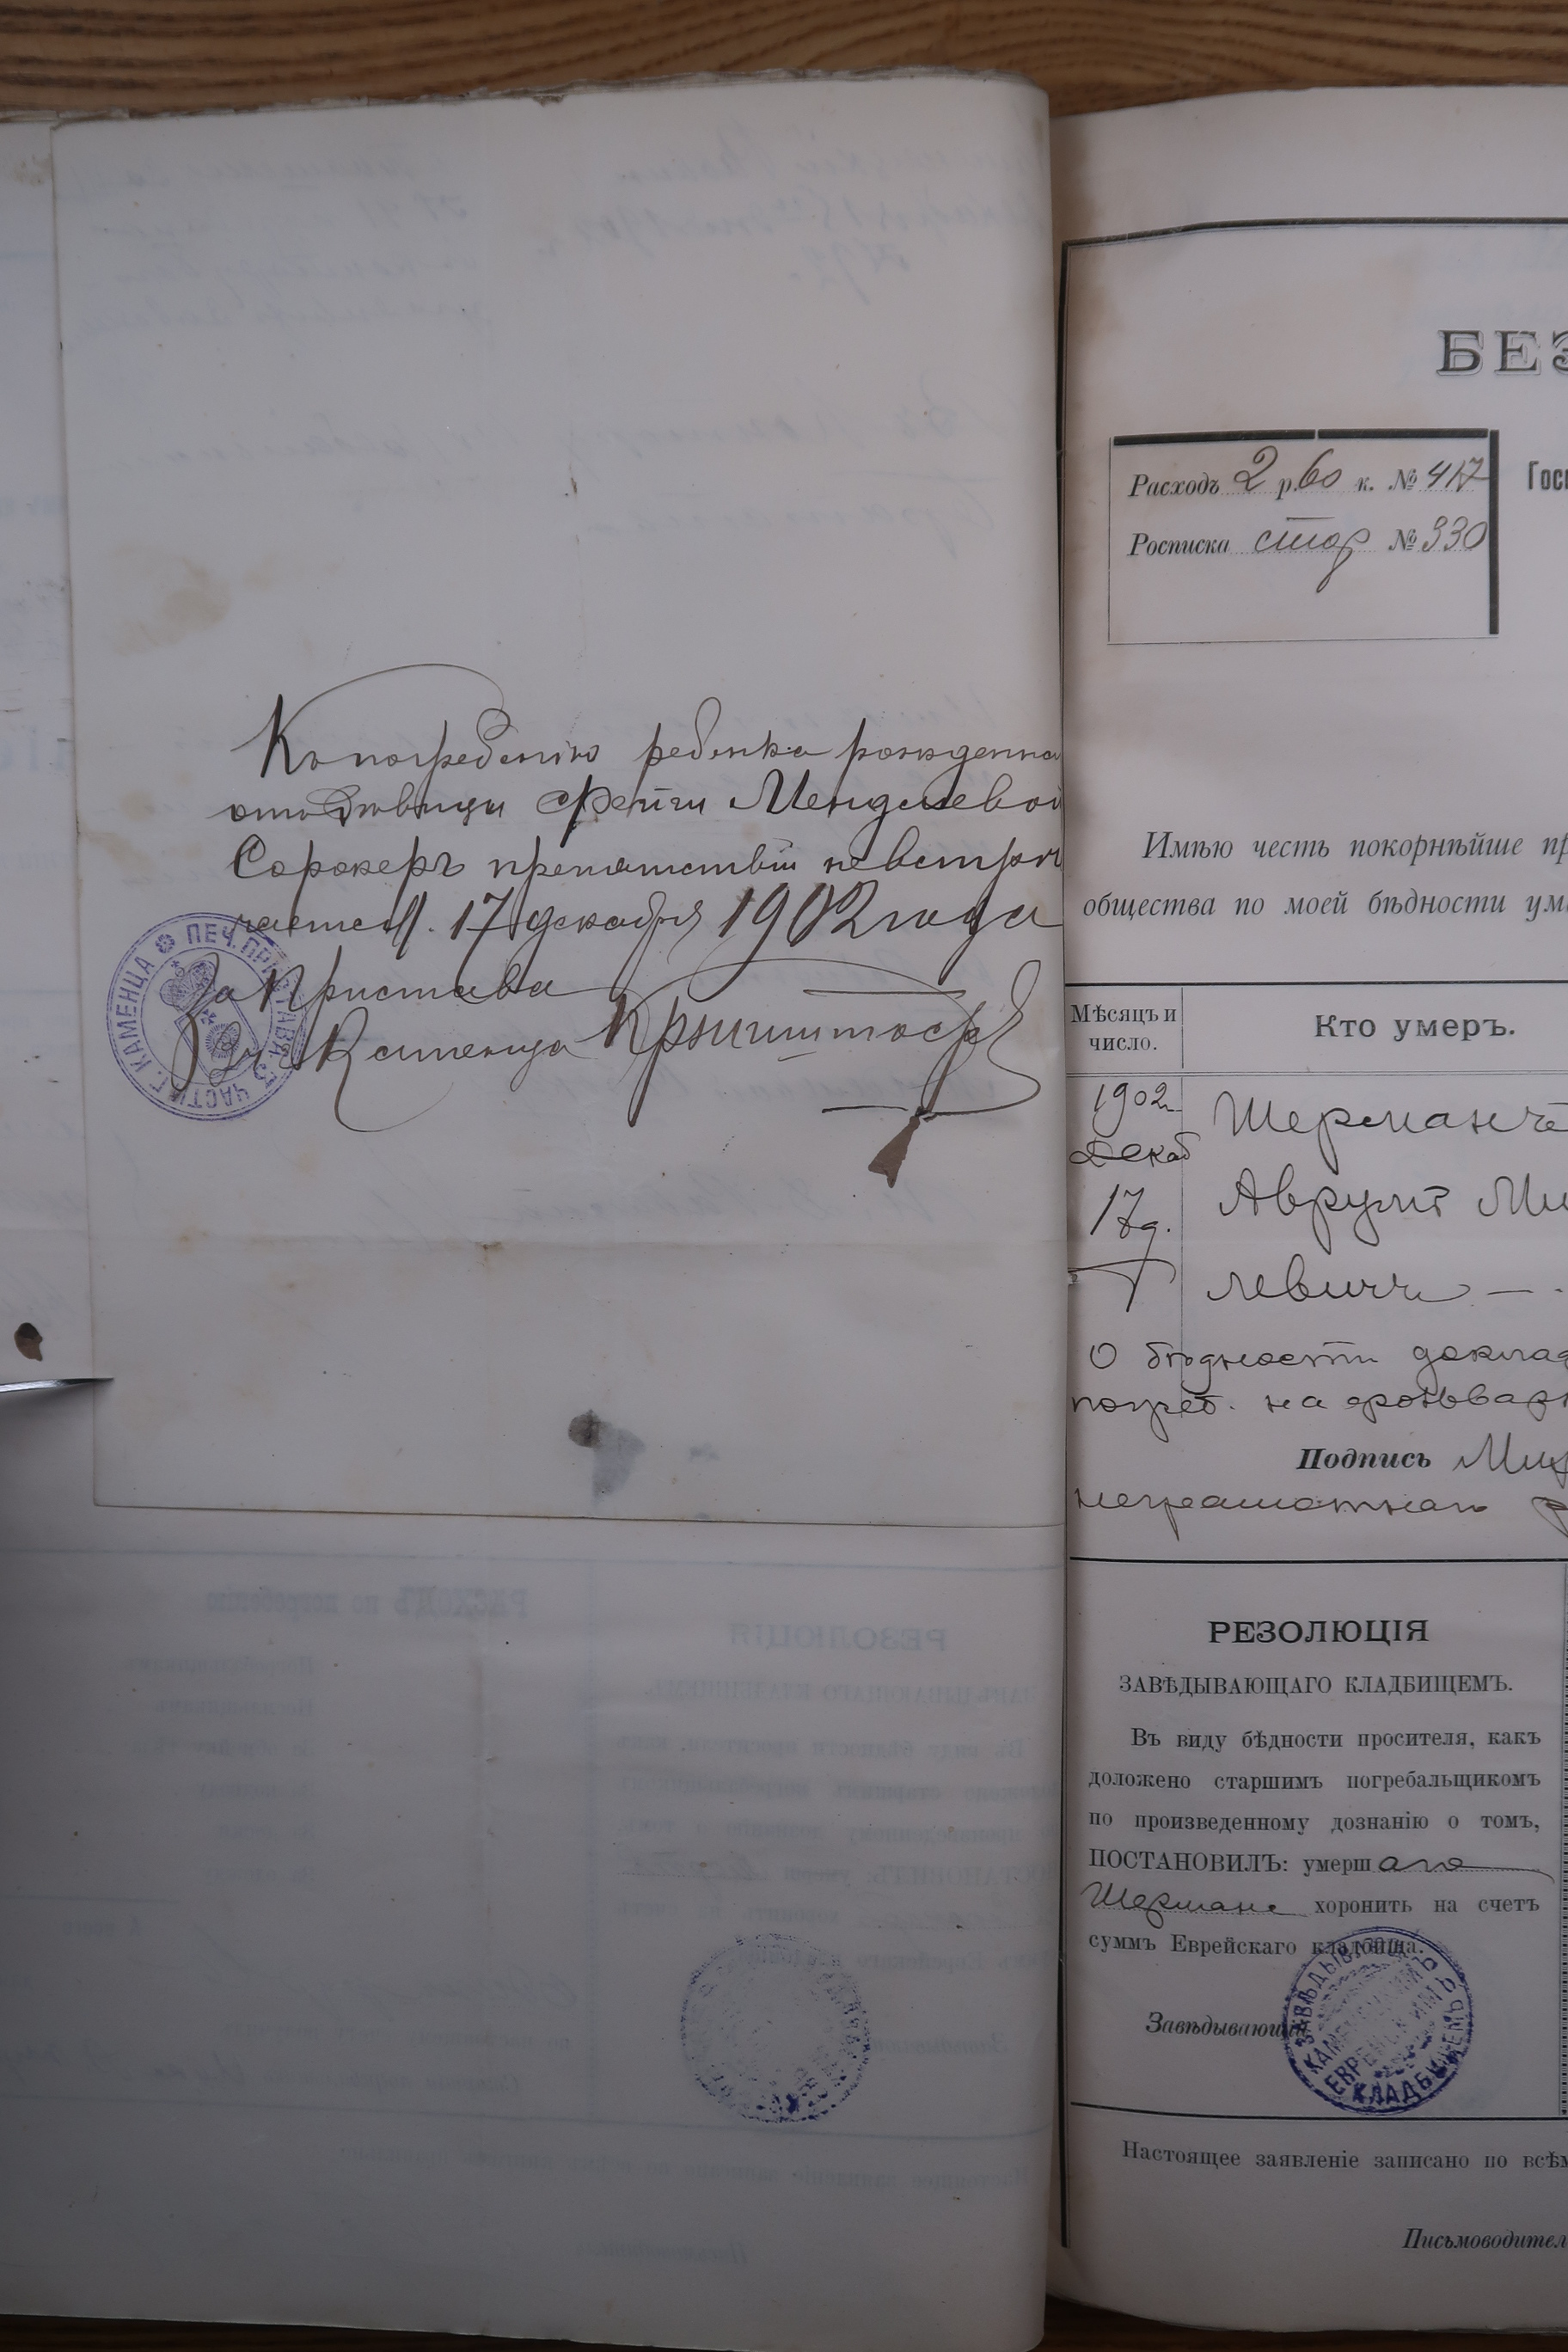 Къ погребенію ребенка рожденна
отъ дѣвицы Фейги Менделевой
Сорокеръ препятствій не встрѣ
чается. 17 декабря 1902 года
За Пристава
3 ч. г. Каменца
ПЕЧ. ПРИСТАВА 3 ЧАСТИ Г. КАМЕНЦА
БЕЗ
Расходъ 2 р. 60 к. № 417
Росписка стор № 330
Гос
Имѣю честь покорнѣйше пр
общества по моей бѣдности ум
Мѣсяцъ и число.
Кто умеръ.
1902 г.
Декаб
17 д.
Шерманъ
Аврумъ Ми
левичъ —
О бѣдности доклад
погреб. на фольварк
Подпись
неграмотнаго
РЕЗОЛЮЦІЯ
ЗАВѢДЫВАЮЩАГО КЛАДБИЩЕМЪ.
Въ виду бѣдности просителя, какъ
доложено старшимъ погребальщикомъ
по произведенному дознанію о томъ,
ПОСТАНОВИЛЪ: умершаго
Шермана хоронить на счетъ
суммъ Еврейскаго кладбища.
Завѣдывающій
ЗАВѢДЫВАЮЩ КАМЕНЕЦКИМЪ ЕВРЕЙСКИМЪ КЛАДБИЩЕМЪ
Настоящее заявленіе записано по всѣм
Письмоводител